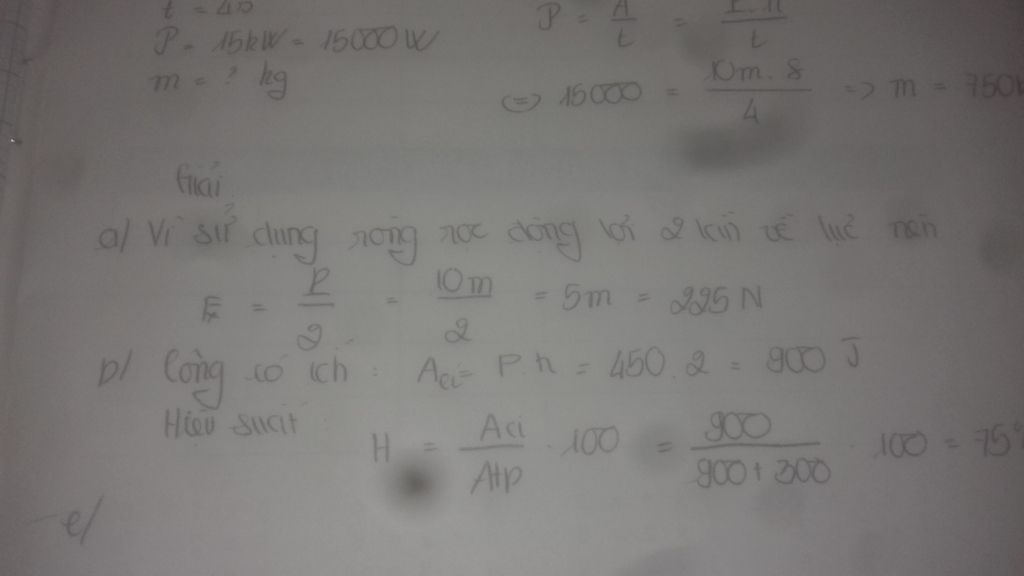 t = 4s
P = A/t = P.h/t
P = 15kW = 15000W
m = ? kg
(=) 15000 = 10m. 8/4 => m = 750k
Giải
a/ Vì sử dụng ròng rọc động lợi 2 lần về lực nên
F = P/2 = 10m/2 = 5m = 225 N
b/ Công có ích : Aci = P.h = 450.2 = 900 J
Hiệu suất :
H = Aci/Atp . 100 = 900/900+300 . 100 = 75%
e/